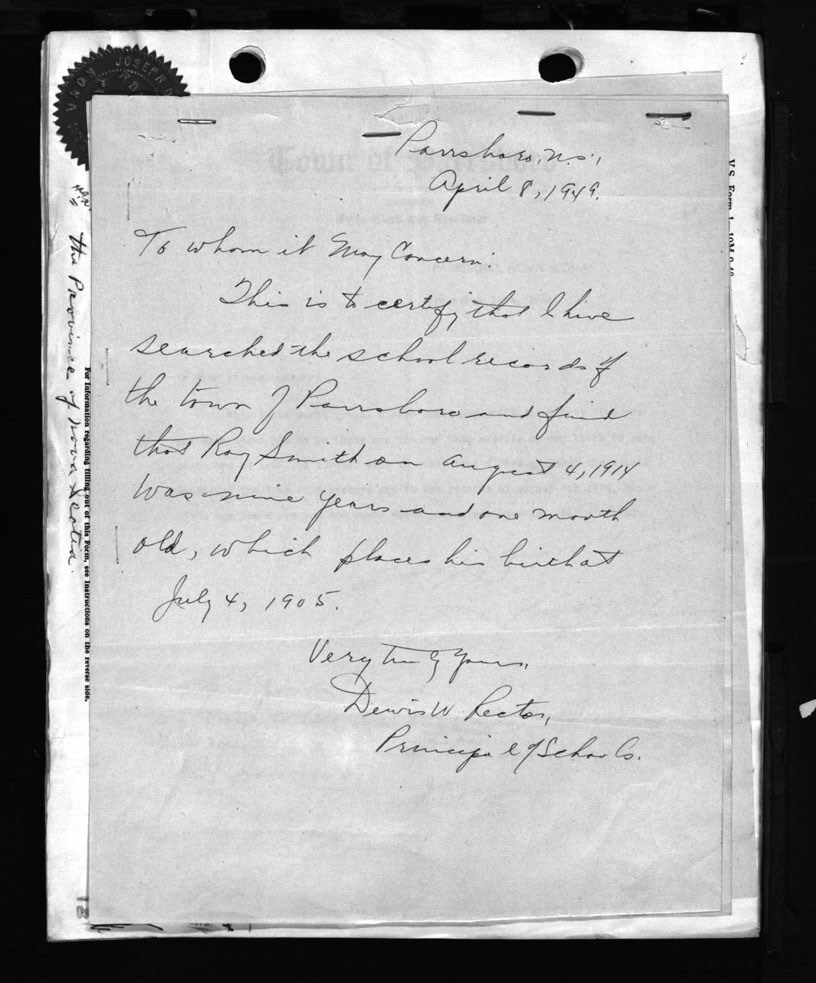 Parrsboro, N.S.,
April 8, 1949.
To whom it May Concern:
This is to certify that I have
searched the school records of
the town of Parrsboro and find
that Roy Smith on August 4, 1914
was nine years and one month
old, which places his birth at
July 4, 1905.
Very truly yours,
Dewis W Rector,
Principal of Schools.
JOSEPH
the Province of Nova Scotia.
For Information regarding filling out of this Form, see Instructions on the reverse side.
Town of Parrsboro